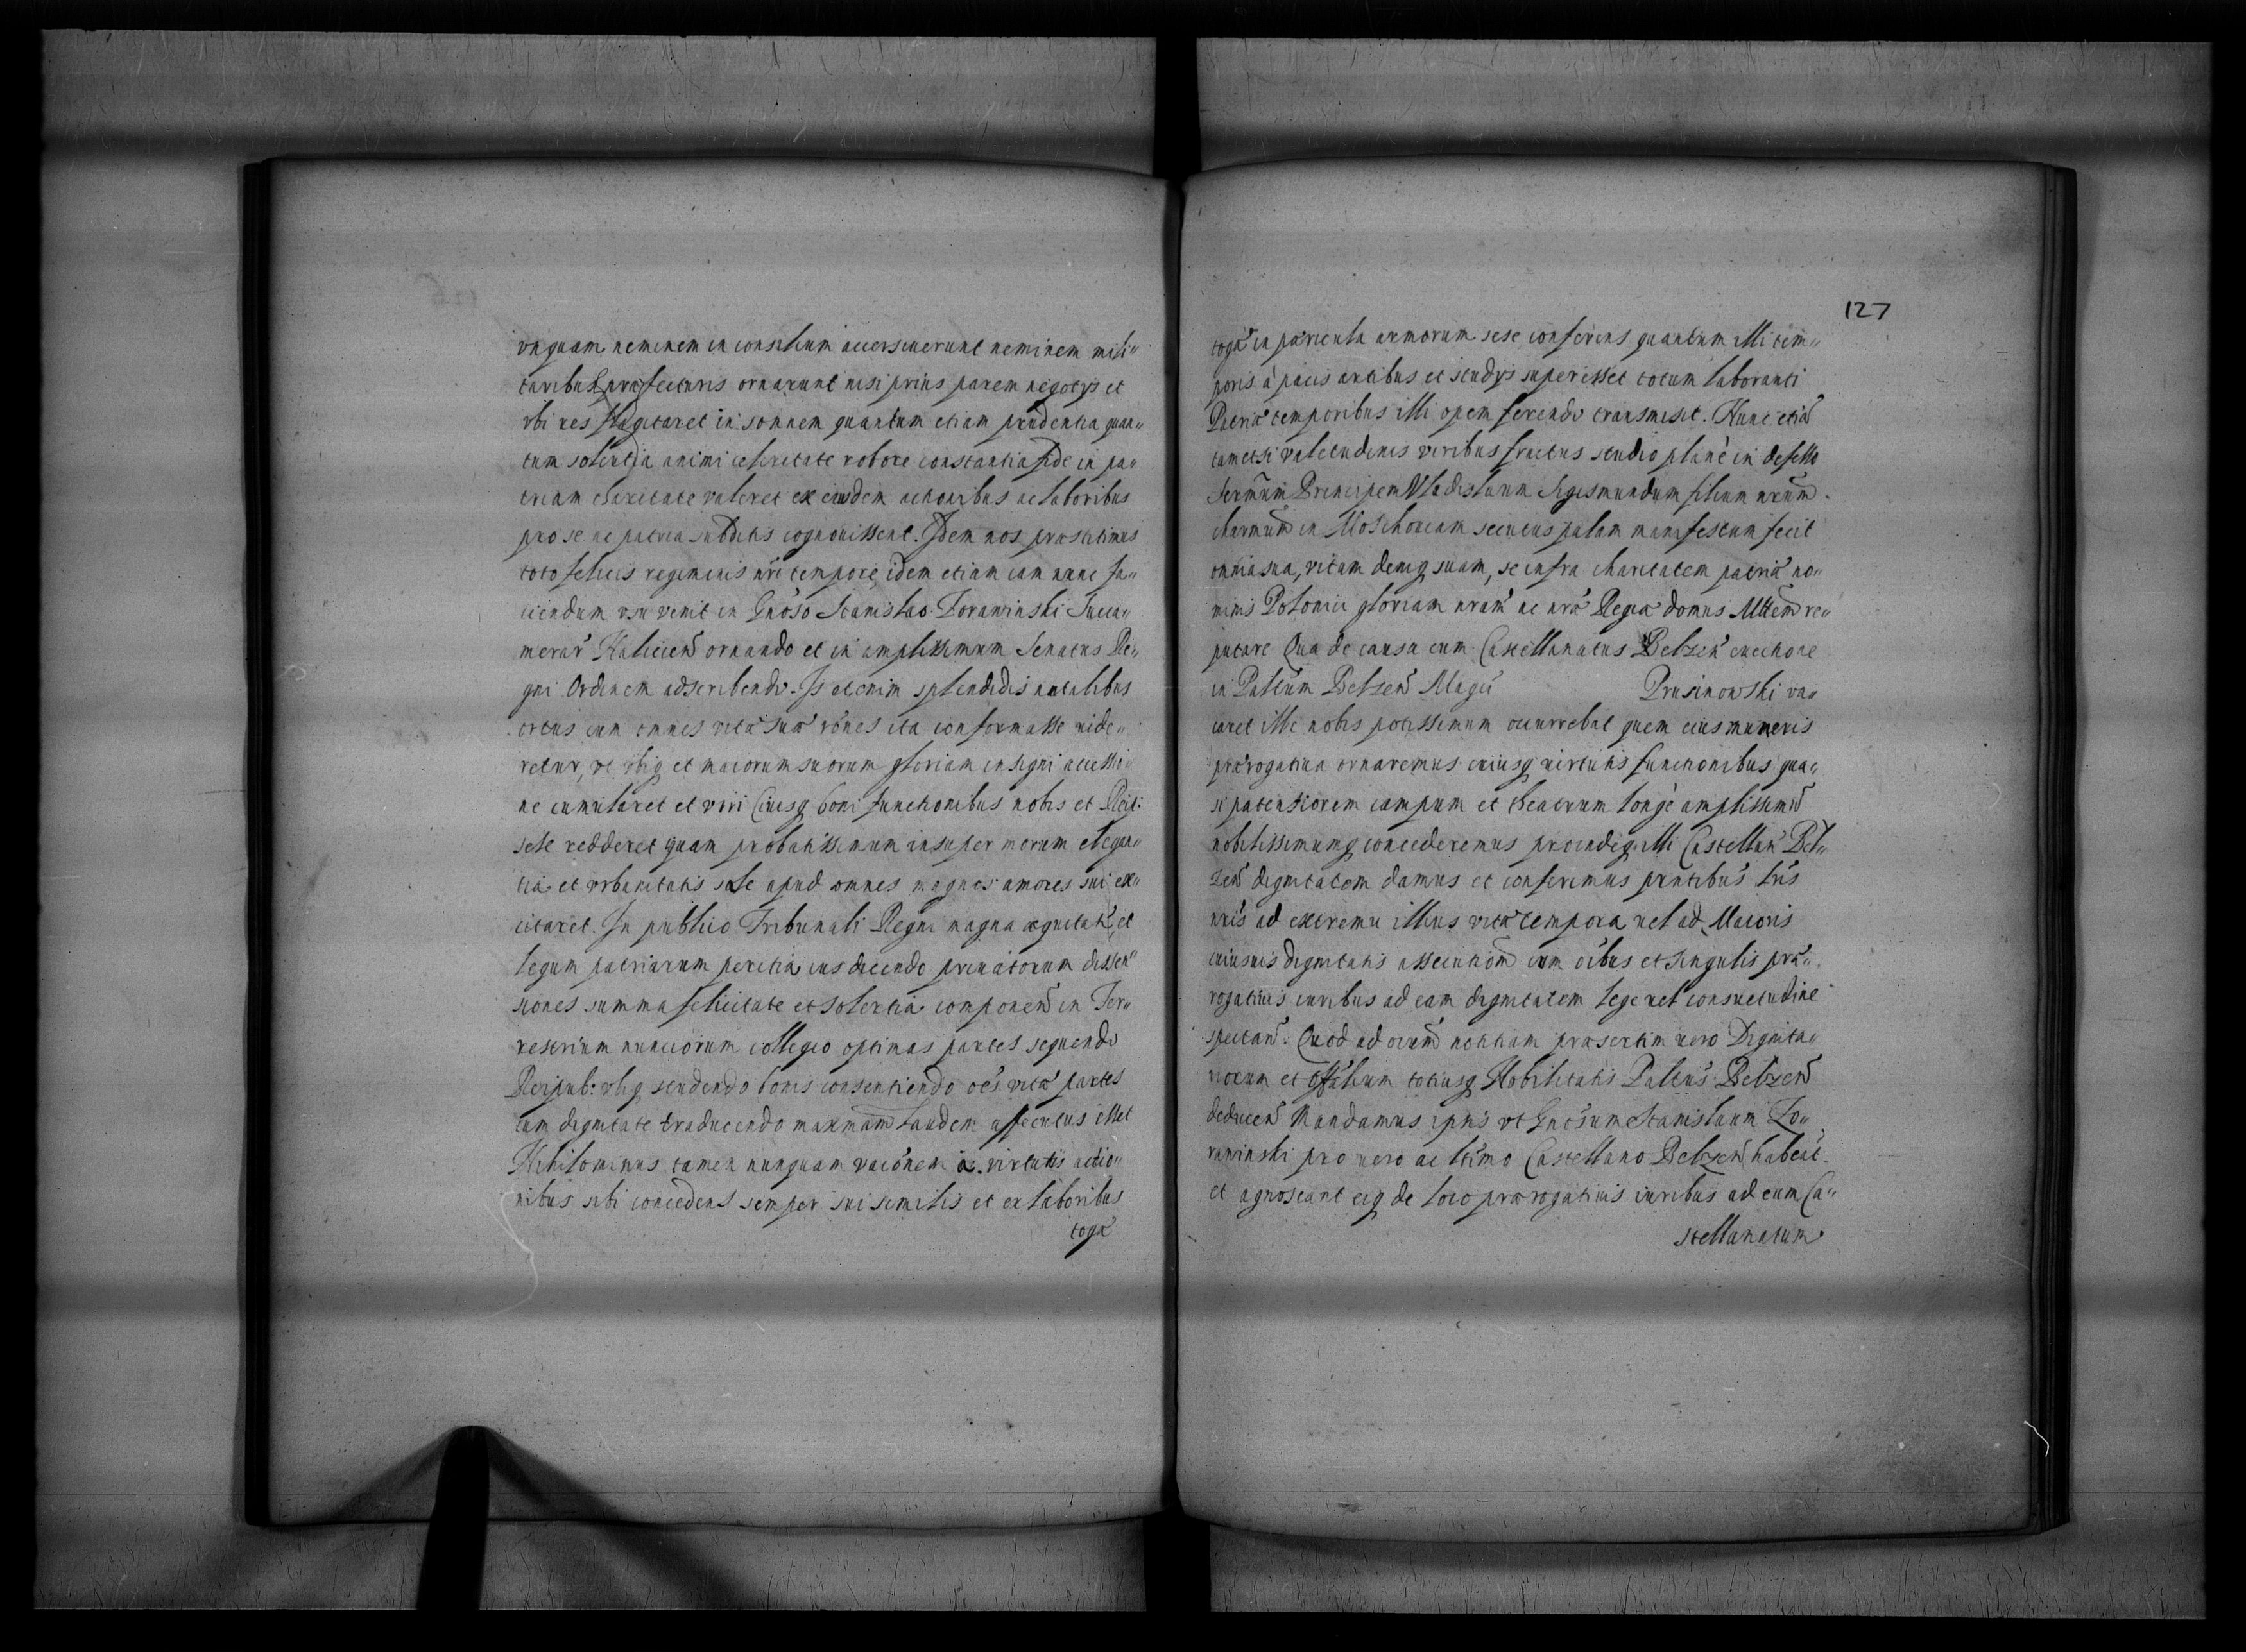 vnquam neminem in consilium acciersiuerunt neminem mili„
taribus præfecturis ornarunt nisi prius parem negotys et
vbi res flagitaret in somnem quantum etiam prudentia quan„
tum solertia animi celeritate robore constantia fide in pa„
triam charitate valeret ex eiusdem actionibus ac laboribus
pro se ac patria subditis cognouissent. Idem nos præstitimus
toto felicis regiminis nr̃i tempore idem etiam iam nunc fa„
ciendum vsu venit in Gnoso Stanislao Zorawinski Succa„
merar̃ Halicien̄ ornando et in amplissimum Senatus Re„
gni Ordinem adscribendo. Is etenim splendidis natalibus
ortus cum omnes vitæ suæ rōnes ita conformasse uide„
retur, vt vbiq et maiorum suorum gloriam insigni accessio„
ne cumularet et viri Ciuisq boni functionibus nobis et Reip:
sese redderet quam probatissimum insuper morum elegan„
tia et vrbanitatis sale apud omnes magnos amores sui ex„
citaret. In publico Tribunali Regni magna æquitate, et
legum patriarum peritia ius dicendo priuatorum dissen„
siones summa felicitate et solertia componen̄ in Ter„
restrium nunciorum collegio optimas partes sequendo
Reipub: vbiq studendo bonis consentiendo oēs vitæ partes
cum dignitate traducendo maxmam laudem assecutus esset
Nihilominus tamen nunquam vacōnem a virtutis actio„
nibus sibi concedens semper sui similis et ex laboribus
togæ
127
togæ in pæricula armorum sese conferens quantum illi tem„
poris à pacis artibus et studys superesset totum laboranti
Patriæ temporibus illi opem ferendo transmisit. Nunc etiā
tametsi valetudinis viribus fractus studio planè in defesso
Sermum Principem Vladislaum Sigismundum filium nr̃um
charmum in Moschouiam secutus palam manifestum fecit
omnia sua, vitam deniq suam, se infra charitatem patriæ no„
minis Polonici gloriam nram̃ ac nræ Regiæ domus Mttem re„
putare Qua de causa cum Castellanatus Belzen̄ euectione
in Paltum Belzen̄ Magci Prusinowski va„
caret ille nobis potissimum occurrebat quem eius muneris
prærogatiua ornaremus cuiusq uirtutis functionibus qua„
si patentiorem campum et theatrum longè amplissimū
nobilissimumq concederemus proindeq illi Castellan̄ Bel„
zen̄ dignitatem damus et conferimus prntibus lr̃is
nr̃is ad extrema illius vitæ tempora uel ad Maioris
cuiusuis dignitatis assecutiōm cum oībus et singulis præ„
rogatiuis iuribus ad eam dignitatem lege uel consuetudine
spectan̄: Quod ad oium̃ notitiam præsertim uero Dignita„
riorum et Offalium totiusq Nobilitatis Paltus Belzen̄
deducen̄ Mandamus ipsis vt Gnōsum Stanislaum Zo„
rawinski pro uero ac ltimo Castellano Belzen̄ habeāt
et agnoscant eiq de loco prærogatiuis iuribus ad eum Ca„
stellanatum